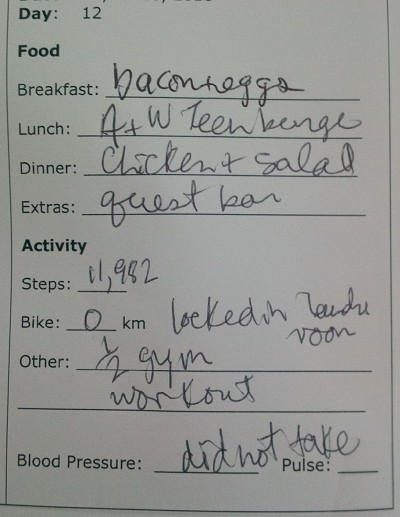 Day: 12
Food
Breakfast: bacon+eggs
Lunch: A+W Teen burge
Dinner: Chicken + salad
Extras: quest bar
Activity
Steps: 11,982
Bike: 0 km locked in
room
Other: 1/2 gym
workout
Blood Pressure: did not take Pulse: